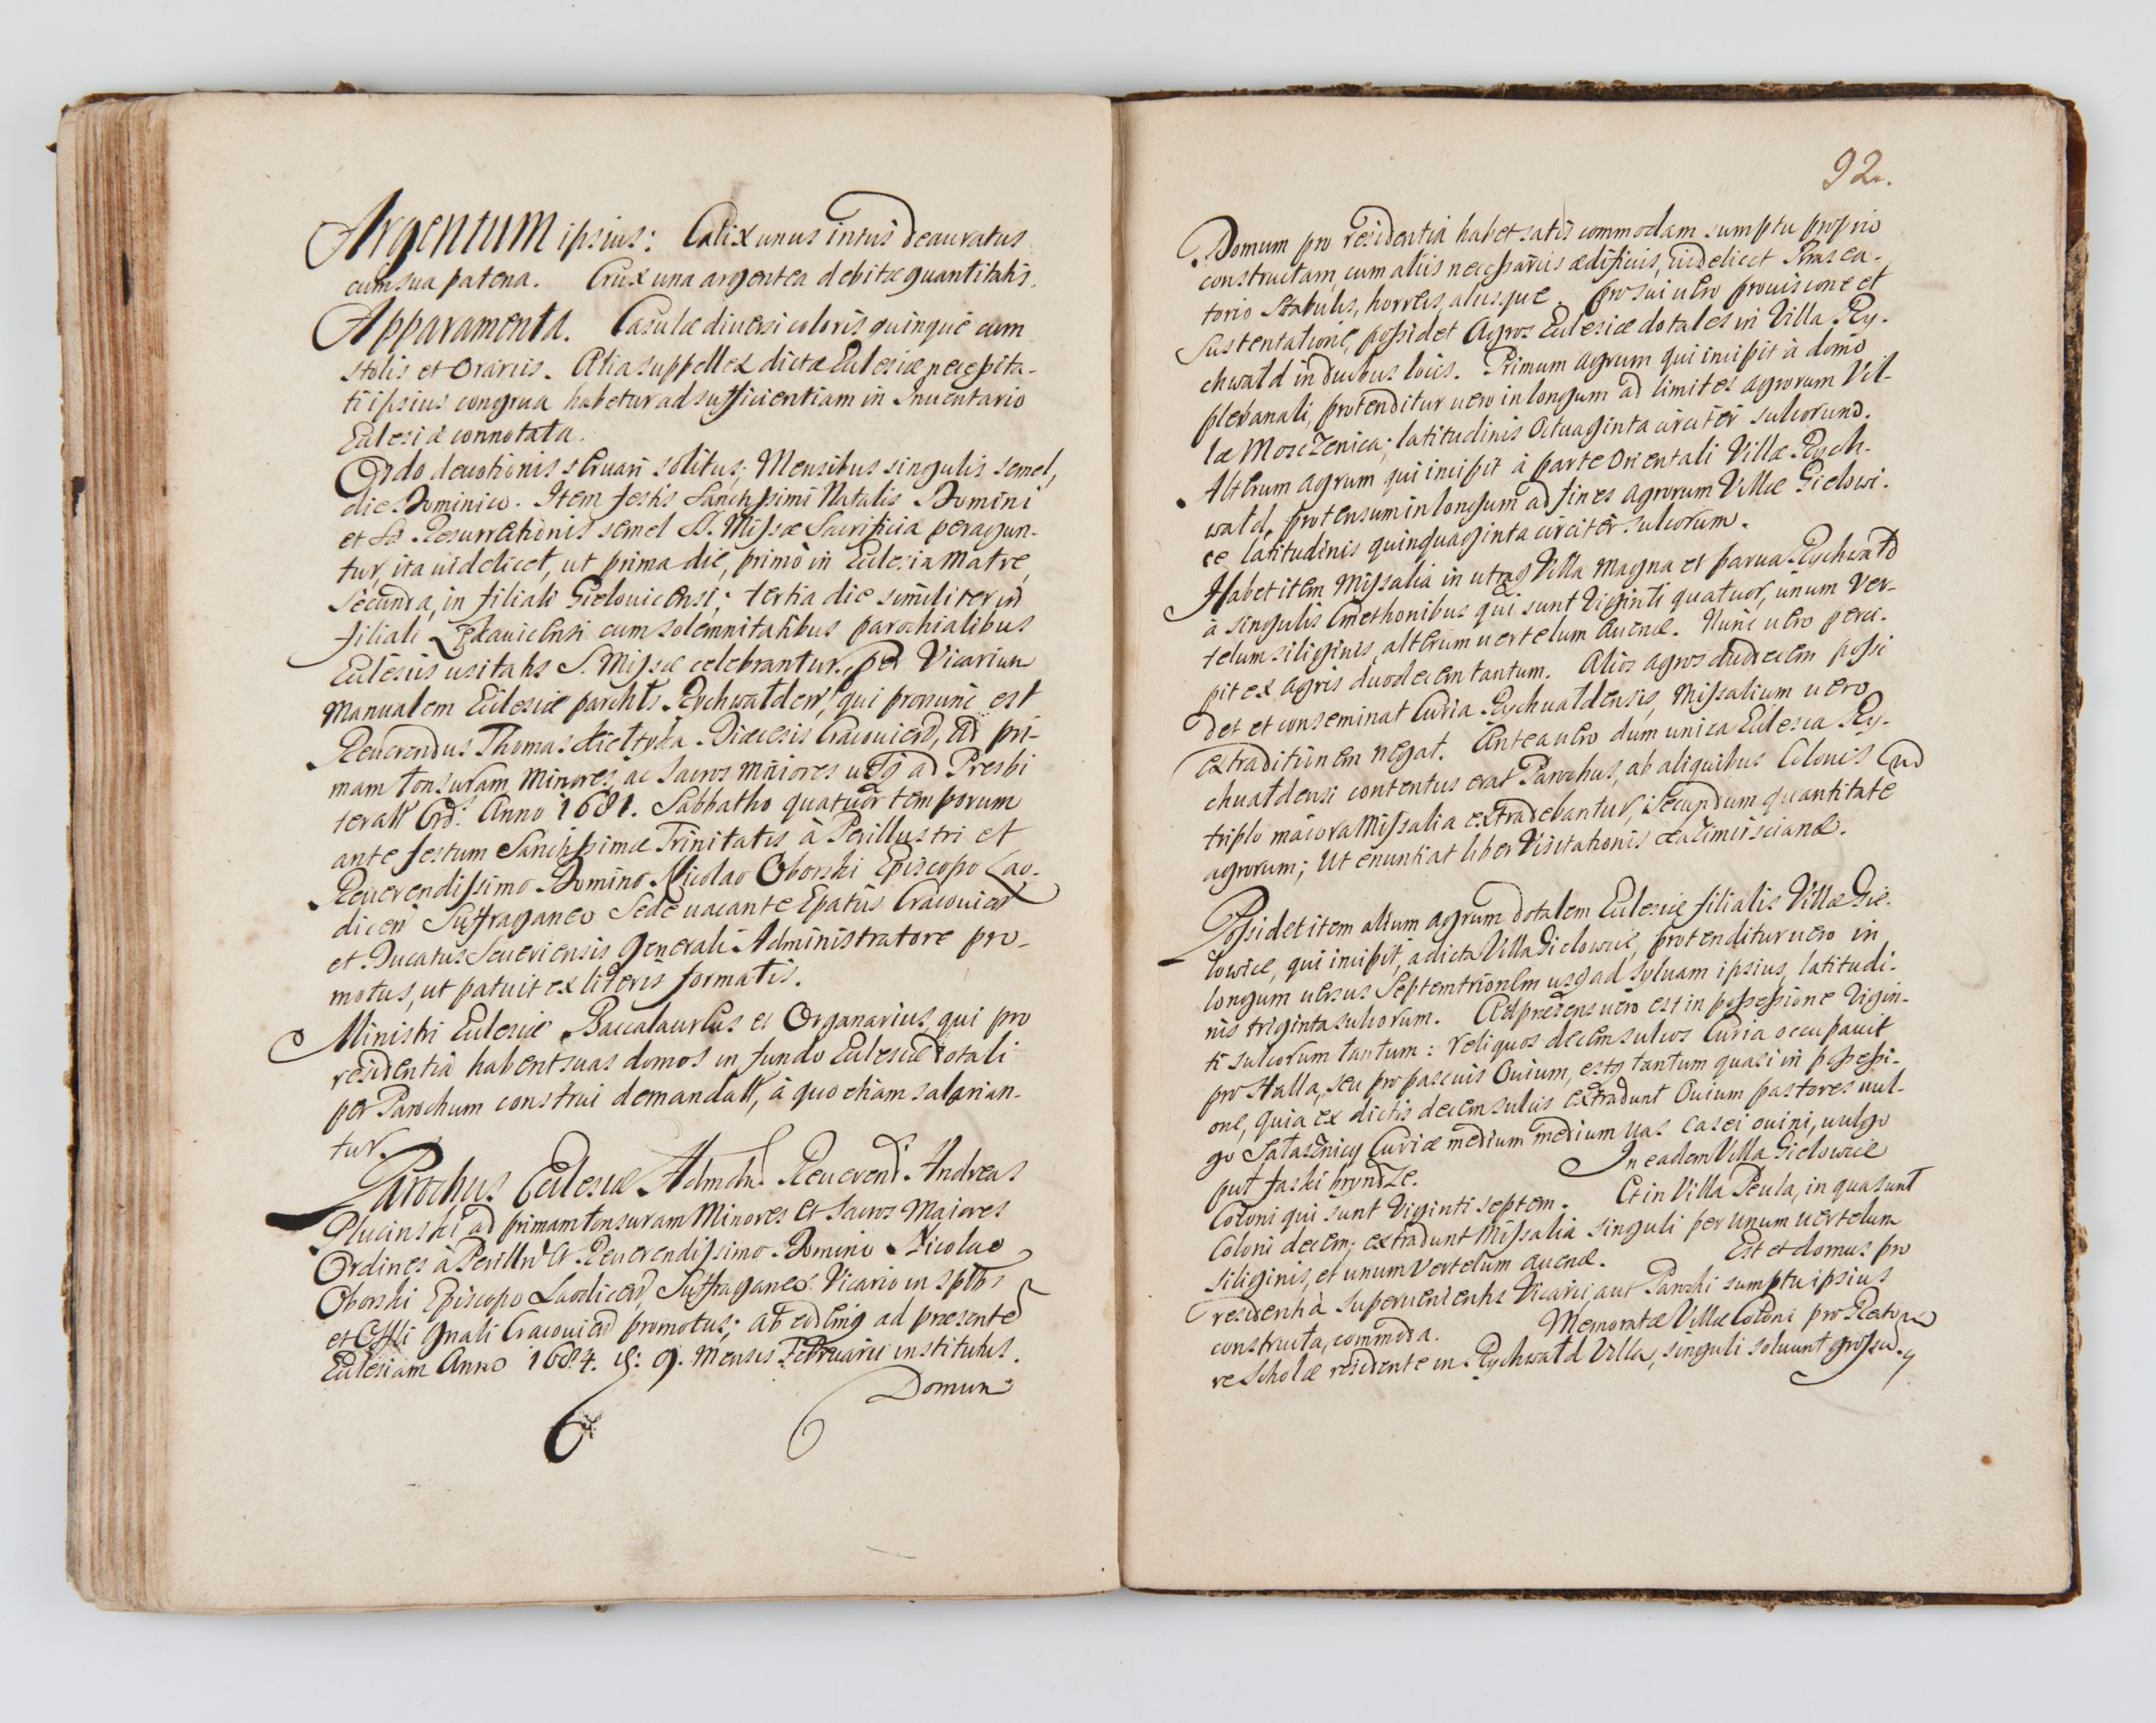 Argentum ipsius: Calix unus intus deauratus
cum sua patena. Crux una argentea debitæ quantitatis.
Apparamenta. Casulæ diuersi coloris quinque cum
stolis et Orariis. Alia suppellex dictæ Eclesiæ necessita-
ti ipsius congrua habetur ad sufficientiam in Inuentario
Eclesiæ connotata.
Ordo deuotionis seruari solitus; Mensibus singulis semel,
die Dominico. Item festis Sanctissimi Natalis Domini
et Resurrectionis semel S. Missæ Sacrificia peragun-
tur, ita uidelicet, ut prima die, primò in Eclesia Matre,
Secunda, in filiali Gielouicensi; tertia die similiter in
filiali cum solemnitatibus parochialibus
Eclesiis usitatis S. Missæ celebrantur. per Vicarium
Manualem Eclesiæ Rychwalden, qui pronunc est
Reuerendus Thomas Diæcesis Cracouien, ad pri-
mam tonsuram, Minores, ac Sacros Maiores usq ad Presbi
terat Ord: Anno 1681. Sabbatho quatuor temporum
ante festum Sanctissimæ Trinitatis à Perillustri et
Reuerendissimo Domino Nicolao Oborski Episcopo Lao-
dicen Suffraganeo Sede uacante Epatus Cracouien
et Ducatus Seueriensis Generali Administratore pro-
motus, ut patuit ex literis formatis.
Ministri Eclesiæ Baccalaureus et Organarius, qui pro
residentia habent suas domos in fundo Eclesiæ dotali
per Parochum construi demandatt, à quo etiam salarian-
tur.
Parochus Eclesiæ Admdu Reuerend. Andreas
Plucinski ad primam tonsuram Minores et Sacros Maiores
Ordines à Perillri et Reuerendissimo Domino Nicolao
Oborski Episcopo Laodicen, Suffraganeo Vicario in Splbs
et Offli Gnali Cracouien promotus; ab eodemq ad præsente
Eclesiam Anno 1684. D: 9. Mensis Februarii institutus.
Domum
92.
Domum pro residentia habet satis commodam sumptu proprio
constructam, cum aliis necessariis ædificiis, uidelicet Brasea-
torio Stabulis, horreis, aliisque. Pro sui uero prouisione et
Sustentatione, possidet Agros Eclesiæ dotales in Villa Ry-
chwatd in duobus locis. Primum agrum qui incipit à domo
plebanali, protenditur uero in longum ad limites agrorum Vil-
læ MoscZenica; latitudinis Octuaginta circiter sulcorum.
Alterum agrum qui incipit à parte Orientali Villæ Rych-
watd, protensum in longum ad fines agrorum Villæ Gielowi-
ce latitudinis quinquaginta circiter sulcorum.
Habet item Missalia in utraq Villa magna et parua Rychwatd
à singulis Cmethonibus qui sunt Viginti quatuor, unum Ver-
telum siliginis, alterum uertelum Auenæ. Nunc uero perci-
pit ex agris duodecim tantum. Alios agros duodecem possi
det et conseminat Curia Rychuatdensis, Missalium uero
extraditionem negat. Antea uero dum unica Eclesia Ry-
chuatdensi contentus erat Parochus, ab aliquibus Colonis
triplo maiora Missalia extradebantur, secundum quantitate
agrorum; Ut enuntiat liber Visitationis Kazimirscianæ.
Possidet item alium agrum dotalem Eclesiæ filialis Villæ Gie-
lowice, qui incipit, à dicta Villa Gielowice, protenditur uero in
longum uersus Septemtrionem usq ad Syluam ipsius, latitudi-
nis triginta sulcorum. Ad præsens uero est in possessione Vigin-
ti sulcorum tantum: reliquos decem sulcos Curia occupauit
pro Halla, seu pro pascuis Ouium, estq tantum quasi in possessi-
one, quia ex dictis decem sulcis extradunt Ouium pastores uul-
go Satasznicy Curiæ medium medium uas casei ouini, uulgo
put faski bryndze. In eadem Villa Gielowice
Coloni qui sunt Viginti septem. Et in Villa Peula, in qua sunt
Coloni decem; extradunt Missalia singuli per unum uertelum
siliginis, et unum Vertelum auenæ. Est et domus pro
residentia superuenientis Vicarii, aut Parochi sumptu ipsius
constructa, commoda. Memoratæ Villæ Coloni pro Rectore
re Scholæ residente in Rychwatd Villa, singuli soluunt